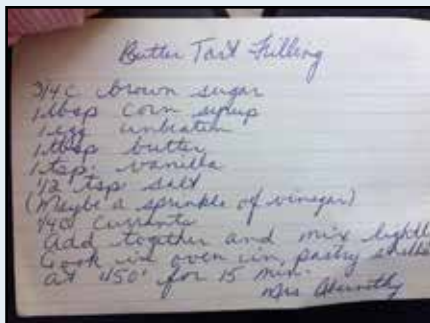 Butter Tart Filling
3/4 c brown sugar
1 tbsp corn syrup
1 egg unbeaten
1 tbsp butter
1 tsp. vanilla
1/2 tsp salt
(Maybe a sprinkle of vinegar)
currants
Add together and mix lightly
Cook in oven in pastry shells
at 450° for 15 min.
Mrs Abernathy